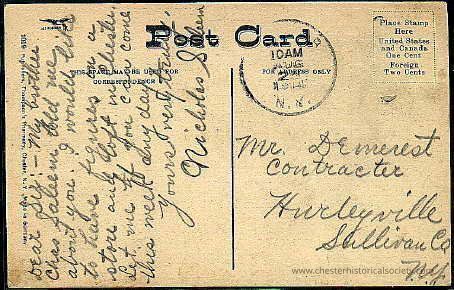 Post Card
THIS SPACE MAY BE USED FOR
CORRESPONDENCE
FOR ADDRESS ONLY
Place Stamp
Here
United States
and Canada
One Cent
Foreign
Two Cents
10 AM
AUG
N.Y.
Dear Sir:- My brother
Chas Saleem told me
about you. I would like
to have figures on a
store and loft in Chester.
Let me if you can come
this week any day.
Yours very truly,
Nicholas Saleem
Mr. Demerest
Contracter
Hurleyville
Sullivan Co
N.Y.
www.chesterhistoricalsociety.com